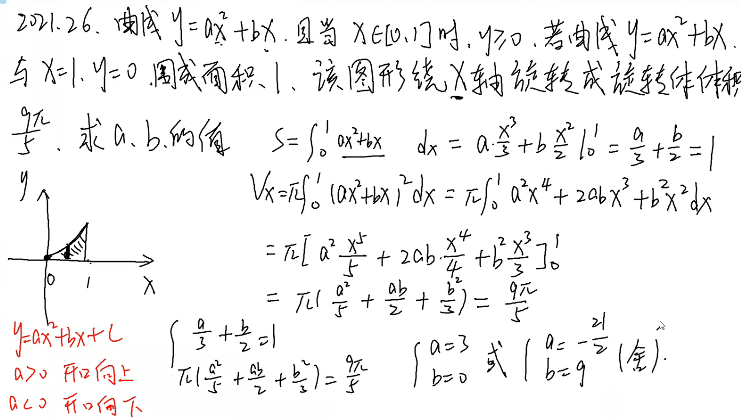 2021.26. 曲线 y=ax²+bx. 且当 x∈[0,1]时, y≥0. 若曲线 y=ax²+bx.
与 x=1. y=0 围成面积、1、该图形绕X轴旋转成旋转体体积
9π/5. 求a、b、的值 S=∫₀¹ ax²+bx dx = a·x³/3+b x²/2|₀¹ = a/3+b/2=1
y Vx=π∫₀¹(ax²+bx)²dx = π∫₀¹ a²x⁴+2abx³+b²x²dx
=π[a² x⁵/5 + 2ab·x⁴/4 + b² x³/3]₀¹
0 1 x
= π(a²/5 + ab/2 + b²/3) = 9π/5
y=ax²+bx+c { a/3+b/2=1
a>0 开口向上 π(a²/5+ab/2+b²/3)=9π/5 { a=3 b=0 或 { a=-21/2 b=9 (舍).
a<0 开口向下